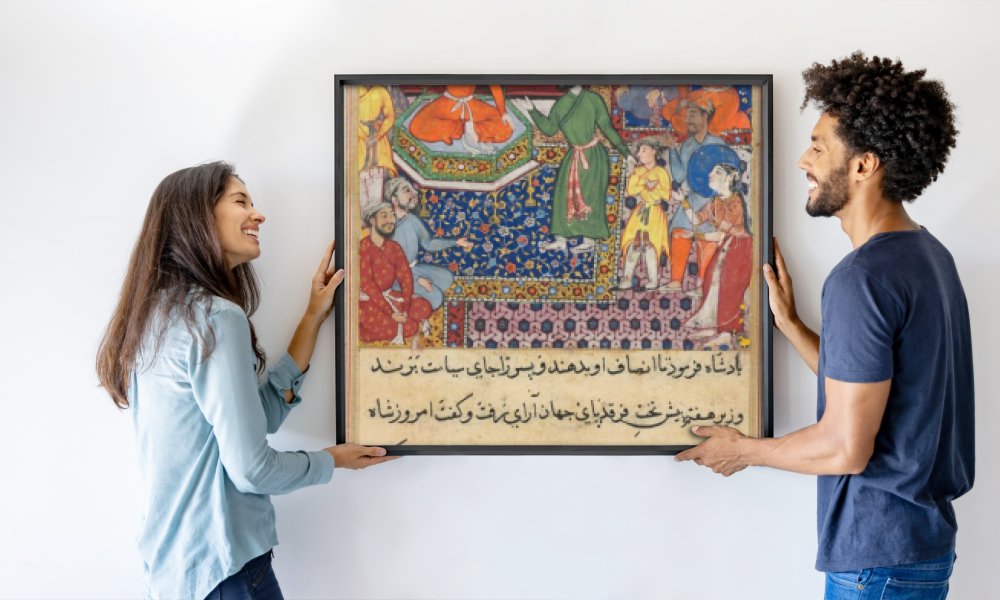 بادشاه فرمود تا انصاف او بدهند و پسر را جای سیاست برند
وزیر هفتم پیش تخت فرقد پای جهان آرای رفت و گفت امروز شاه